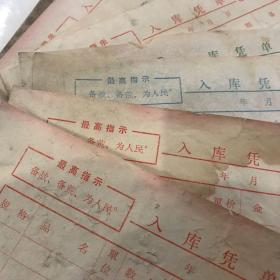 入库凭单
年 月
最高指示
备战、备荒、为人民。
入库凭
年 月
最高指示
备战、备荒、为人民。
入库凭
年 月
单价 金
最高指示
备战、备荒、为人民。
入库凭
年
规格 品名 单位 数